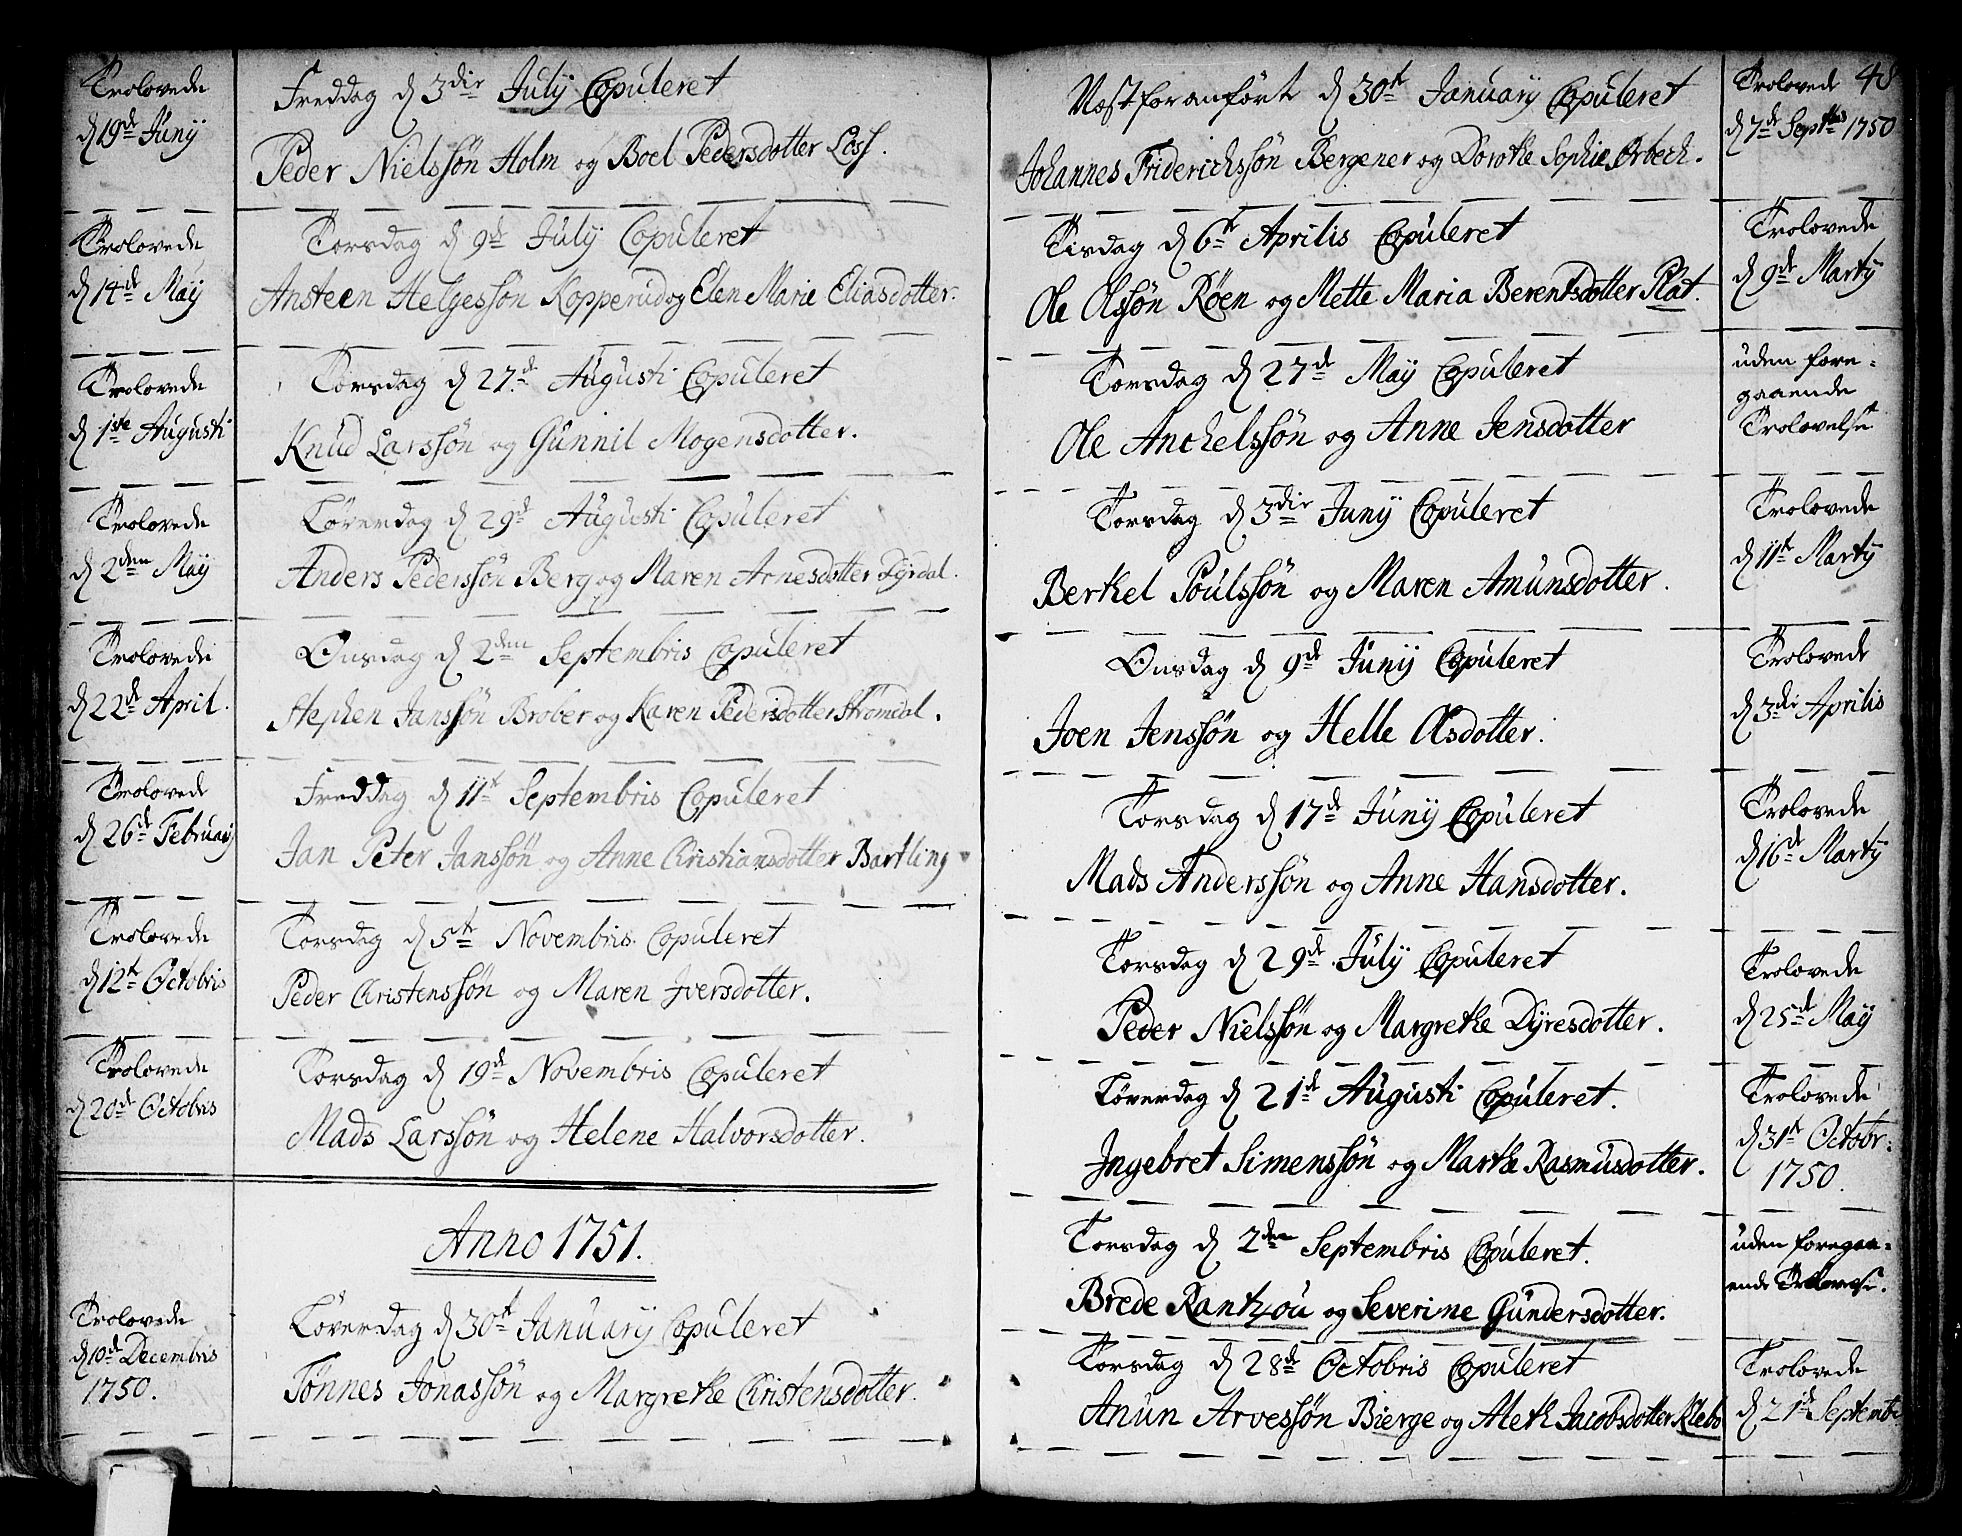 Trolovede
d 19de Junij
Freddag d 3die July Copuleret
Peder Nielssøn Holm og Boel Pedersdotter Löss.
Trolovede
d 14de Maij
Torsdag d 9de July Copuleret
Ansteen Helgessøn Kopperud og Elen Marie Eliasdotter.
Trolovede
d 1ste Augusti
Torsdag d 27de Augusti Copuleret
Knud Larssøn og Gunnil Mogensdotter.
Trolovede
d 2den Maij
Løverdag d 29de Augusti Copuleret
Anders Pederssøn Berg og Maren Arnesdotter Dyrdal.
Trolovede
d 22de April.
Onsdag d 2den Septembris Copuleret
Stephen Janssøn Brober og Karen Pedersdotter Strömdal.
Trolovede
d 26de February
Freddag d 11te Septembris Copuleret
Jan Peter Janssøn og Anne Christiansdotter Bartling
Trolovede
d 12te Octobris
Torsdag d 5te Novembris Copuleret
Peder Christenssøn og Maren Iversdotter.
Trolovede
d 20de Octobris
Torsdag d 19de Novembris Copuleret
Mads Larssøn og Helene Halvorsdotter.
Anno 1751.
Trolovede
d 10de Decembris
1750.
Løverdag d 30te January Copuleret
Tønnes Jonassøn og Margrethe Christensdotter.
48
Næstforanført d 30te January Copuleret
Johannes Friderichssøn Bergener og Dorothe Sophie Orbech.
Trolovede
d 7de Septbris 1750
Tisdag d 6te Aprilis Copuleret
Ole Olssøn Røen og Mette Maria Berentsdotter Plat.
Trolovede
d 9de Martij
Torsdag d 27de Maij Copuleret
Ole Anchelssøn og Anne Jensdotter
uden fore-
gaaende
Trolovelse
Torsdag d 3die Junij Copuleret
Berthel Poulssøn og Maren Amunsdotter.
Trolovede
d 11te Martij
Onsdag d 9de Junij Copuleret
Joen Jenssøn og Helle Olsdotter.
Trolovede
d 3die Aprilis
Torsdag d 17de Junij Copuleret
Mads Anderssøn og Anne Hansdotter.
Trolovede
d 16de Martij
Torsdag d 29de July Copuleret
Peder Nielssøn og Margrethe Dyresdotter.
Trolovede
d 25de Maij
Løverdag d 21de Augusti Copuleret.
Ingebret Simenssøn og Marthe Rasmusdotter.
Trolovede
d 31te Octobr:
1750.
Torsdag d 2den Septembris Copuleret.
Brede Rantzou og Severine Gundersdotter.
uden foregaa-
ende Trolovelse.
Torsdag d 28de Octobris Copuleret
Anun Arvessøn Bierge og Aleth Jacobsdotter Klebo
Trolovede
d 21de Septemb